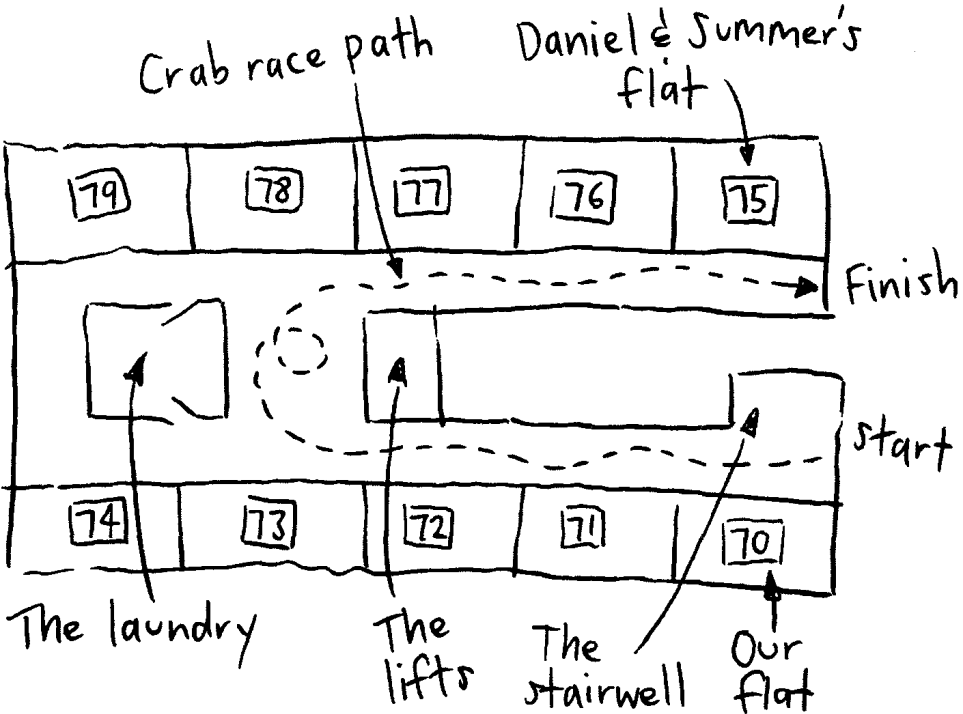 Crab race path
Daniel & Summer's
flat
79
78
77
76
75
Finish
start
74
73
72
71
70
The laundry
The
lifts
The
stairwell
Our
flat